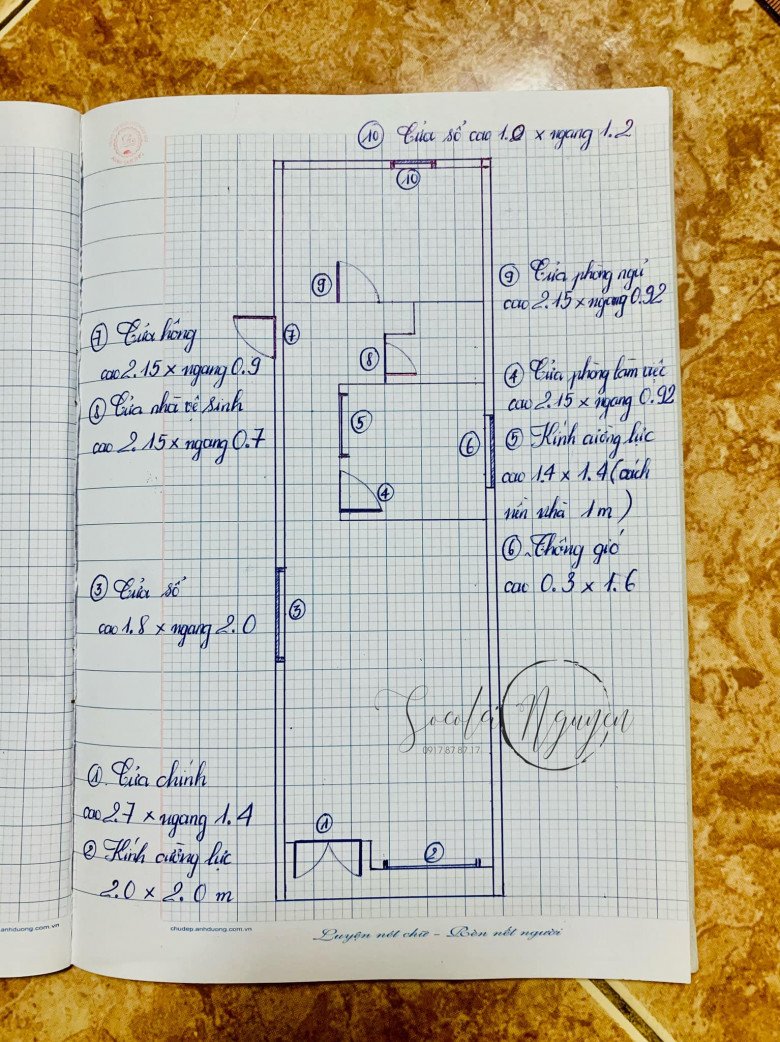 ⑩ Cửa sổ cao 1.0 x ngang 1.2
⑩
⑨
⑨ Cửa phòng ngủ
cao 2.15 x ngang 0.92
⑦
⑦ Cửa hông
cao 2.15 x ngang 0.9
⑧
⑧ Cửa nhà vệ sinh
cao 2.15 x ngang 0.7
④ Cửa phòng làm việc
cao 2.15 x ngang 0.92
⑤
⑥
⑤ Kính cường lực
cao 1.4 x 1.4 (cách
nền nhà 1m)
④
⑥ Thông gió
cao 0.3 x 1.6
③ Cửa sổ
cao 1.8 x ngang 2.0
③
Socola Nguyen
0917.87.87.17
① Cửa chính
cao 2.7 x ngang 1.4
② Kính cường lực
2.0 x 2.0 m
①
②
anhduong.com.vn
chudep.anhduong.com.vn
Luyện nét chữ - Rèn nết người